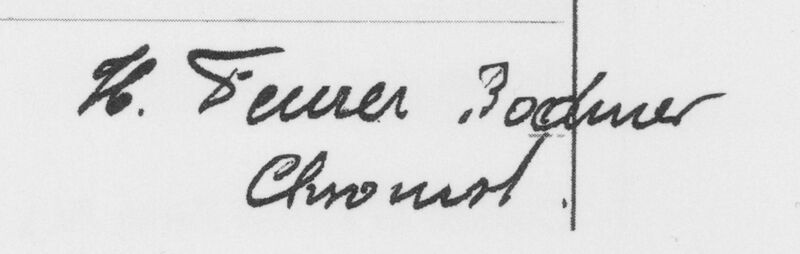 H. Feurer Bodmer
Chronist.